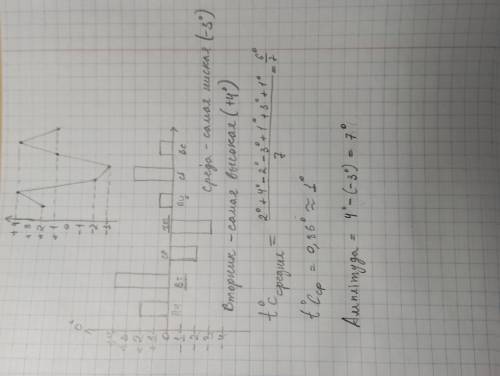 +4
+3
+2
+1
0
-1
-2
-3
0°
+4
+3
+2
+1
0
-1
-2
-3
-4
ПН
Вт
ср
ПТ
Сб
Вс
Вторник - самая высокая (+4°)
Среда - самая низкая (-3°)
t°C средняя = 2° + 4° - 2° - 3° + 1° + 3° + 1° / 7 = 6° / 7
t°C ср = 0,86° ≈ 1°
Амплітуда = 4° - (-3°) = 7°